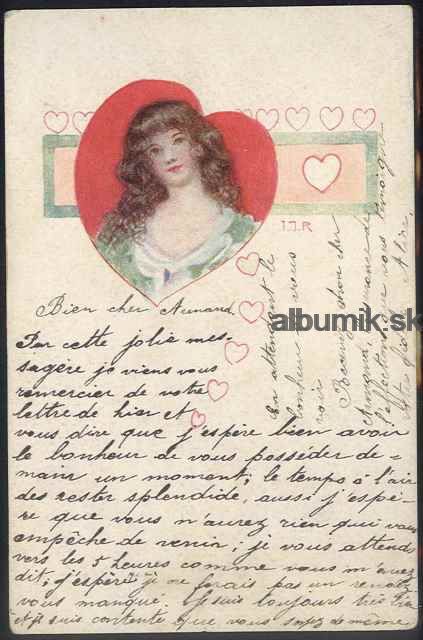 I.J.R
Bien cher Armand.
Par cette jolie mes-
sagère je viens vous
remercier de votre
lettre de hier et
vous dire que j'espère bien avoir
le bonheur de vous posséder de-
main un moment; le temps à l'air
des rester splendide, aussi j'espè-
re que vous n'aurez rien qui vous
empêche de venir; je vous attends
vers les 5 heures comme vous m'avez
dit; j'espère je ne ferais pas un rendez
vous manqué. Je suis toujours très
et je suis contente que vous soyez de même
En attendant le
bonheur de vous
voir
Recevez, mon cher
Armand, l'assurance de
l'affection que vous témoigne
albumik.sk